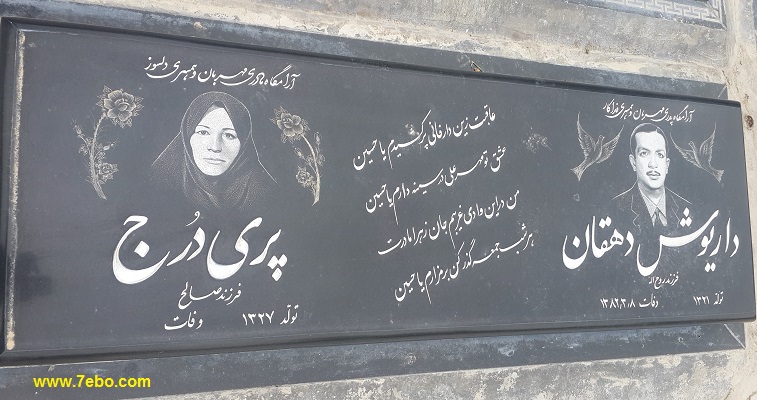 آرامگاه پدری مهربان و همسری فداکار
داریوش دهقان
فرزند روح اله
تولد ۱۳۲۱ وفات ۱۳۸۲,۳,۸
عاقبت زین دار فانی پر کشیدم یا حسین
عشق تو مهر علی در سینه دارم یا حسین
من در این وادی غریبم جان زهرا مادرت
هر شب جمعه گذر کن بر مزارم یا حسین
آرامگاه مادری مهربان و همسری دلسوز
پری دُرج
فرزند صالح
تولد ۱۳۲۷ وفات
www.7ebo.com